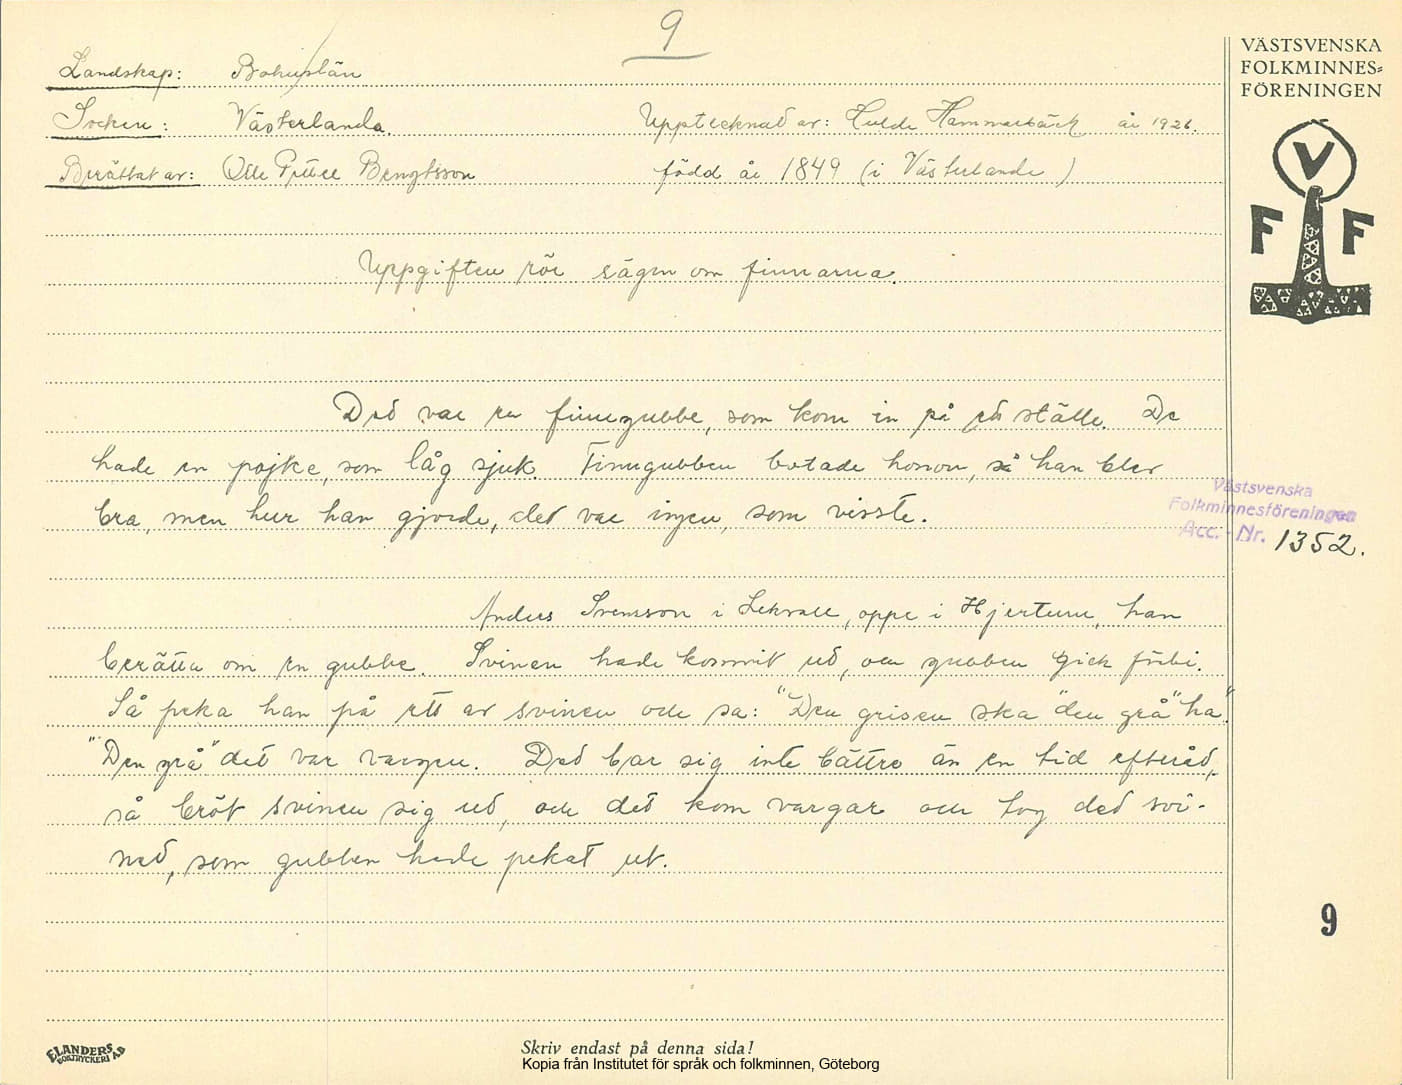 9
Landskap: Bohuslän
Socken: Västerlanda. Upptecknad av: Hulda Hammarbäck år 1926.
Berättat av: Olle Petter Bengtsson född år 1849 (i Västerlanda)
Uppgiften rör sägen om finnarna.
Ded var en finnegubbe, som kom in på ett ställe. De
hade en pojke, som låg sjuk. Finngubben botade honom, så han blev
bra, men hur han gjorde, det var ingen, som visste.
Anders Svensson i Lekvall, oppe i Hjertum, han
berätta om en gubbe. Svinen hade kommit ud, och gubben gick förbi.
Så peka han på ett av svinen och sa: "Den grisen ska "den grå" ha."
"Den grå" det var vargen. Ded bar sig inte bättre än en tid efteråd,
så bröt svinen sig ud, och det kom vargar och tog ded svi-
ned, som gubben hade pekat ut.
VÄSTSVENSKA
FOLKMINNES-
FÖRENINGEN
V
F F
Västsvenska
Folkminnesföreningen
Acc. - Nr. 1352.
9
ELANDERS
BOKTRYCKERI AB
Skriv endast på denna sida!
Kopia från Institutet för språk och folkminnen, Göteborg